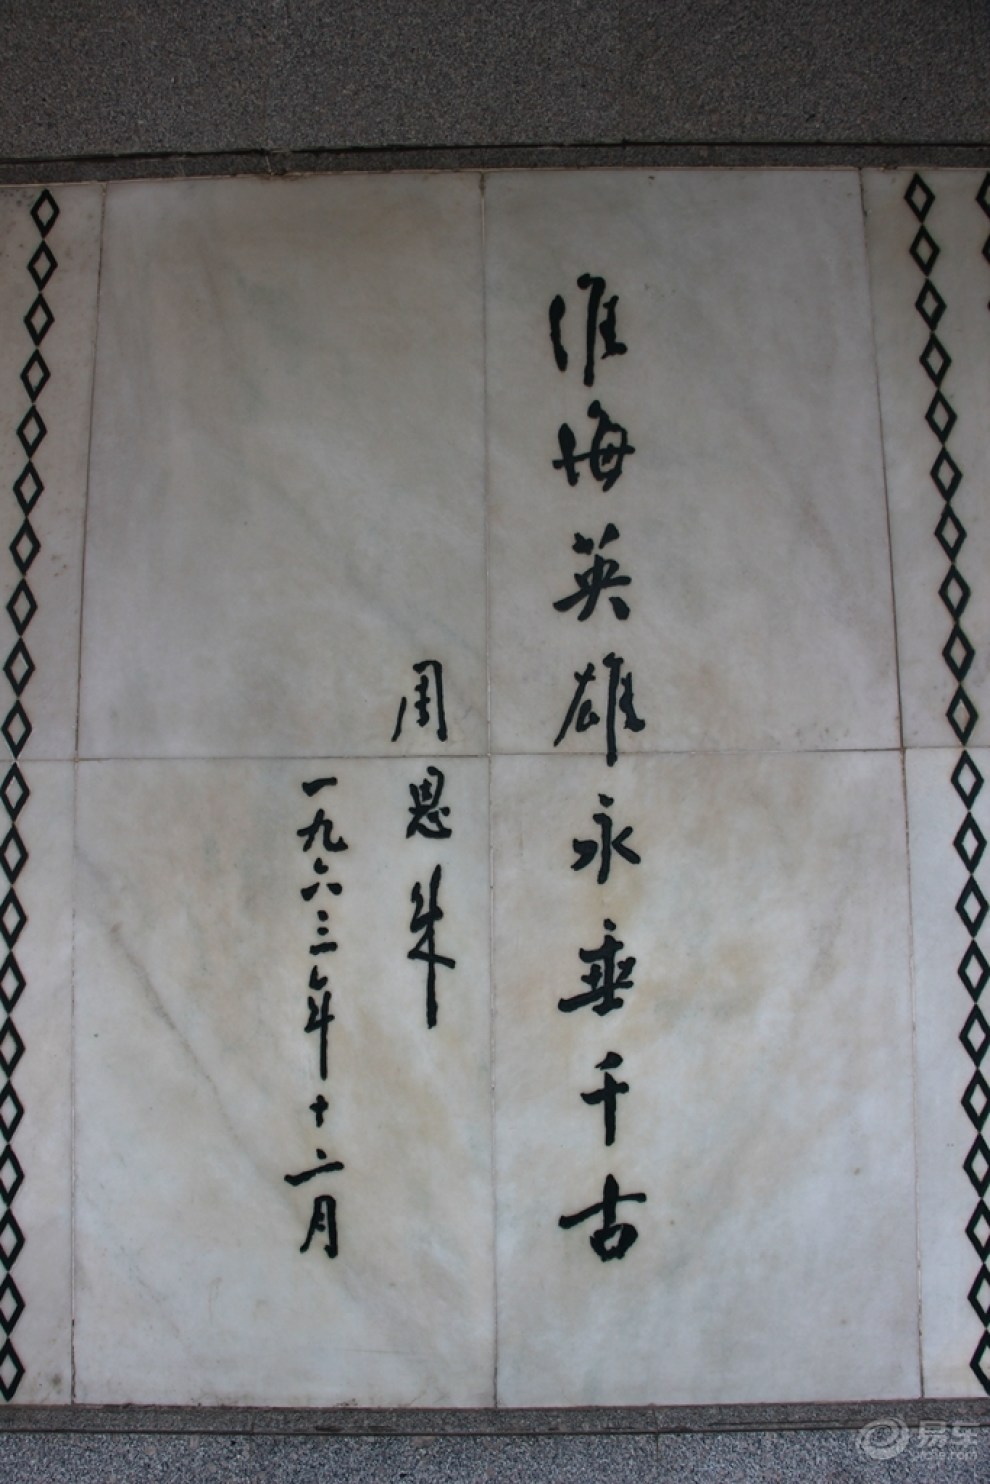 淮海英雄永垂千古
周恩来
一九六三年十二月
易车